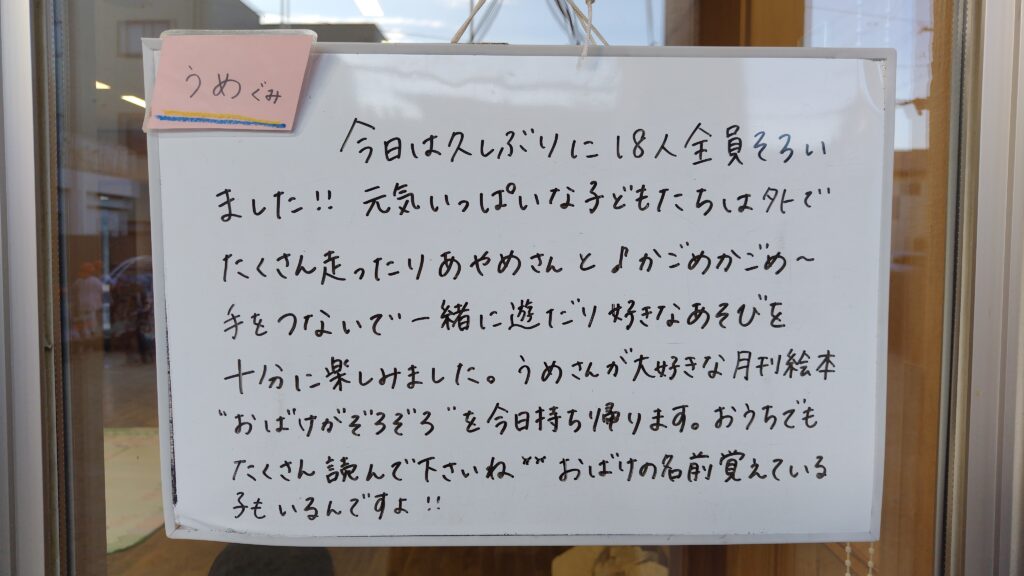 うめぐみ
今日は久しぶりに18人全員そろい
ました!! 元気いっぱいな子どもたちは外で
たくさん走ったりあやめさんと♪かごめかごめ～
手をつないで一緒に遊だり好きなあそびを
十分に楽しみました。うめさんが大好きな月刊絵本
"おばけがぞろぞろ"を今日持ち帰ります。おうちでも
たくさん読んで下さいね** おばけの名前覚えている
子もいるんですよ!!